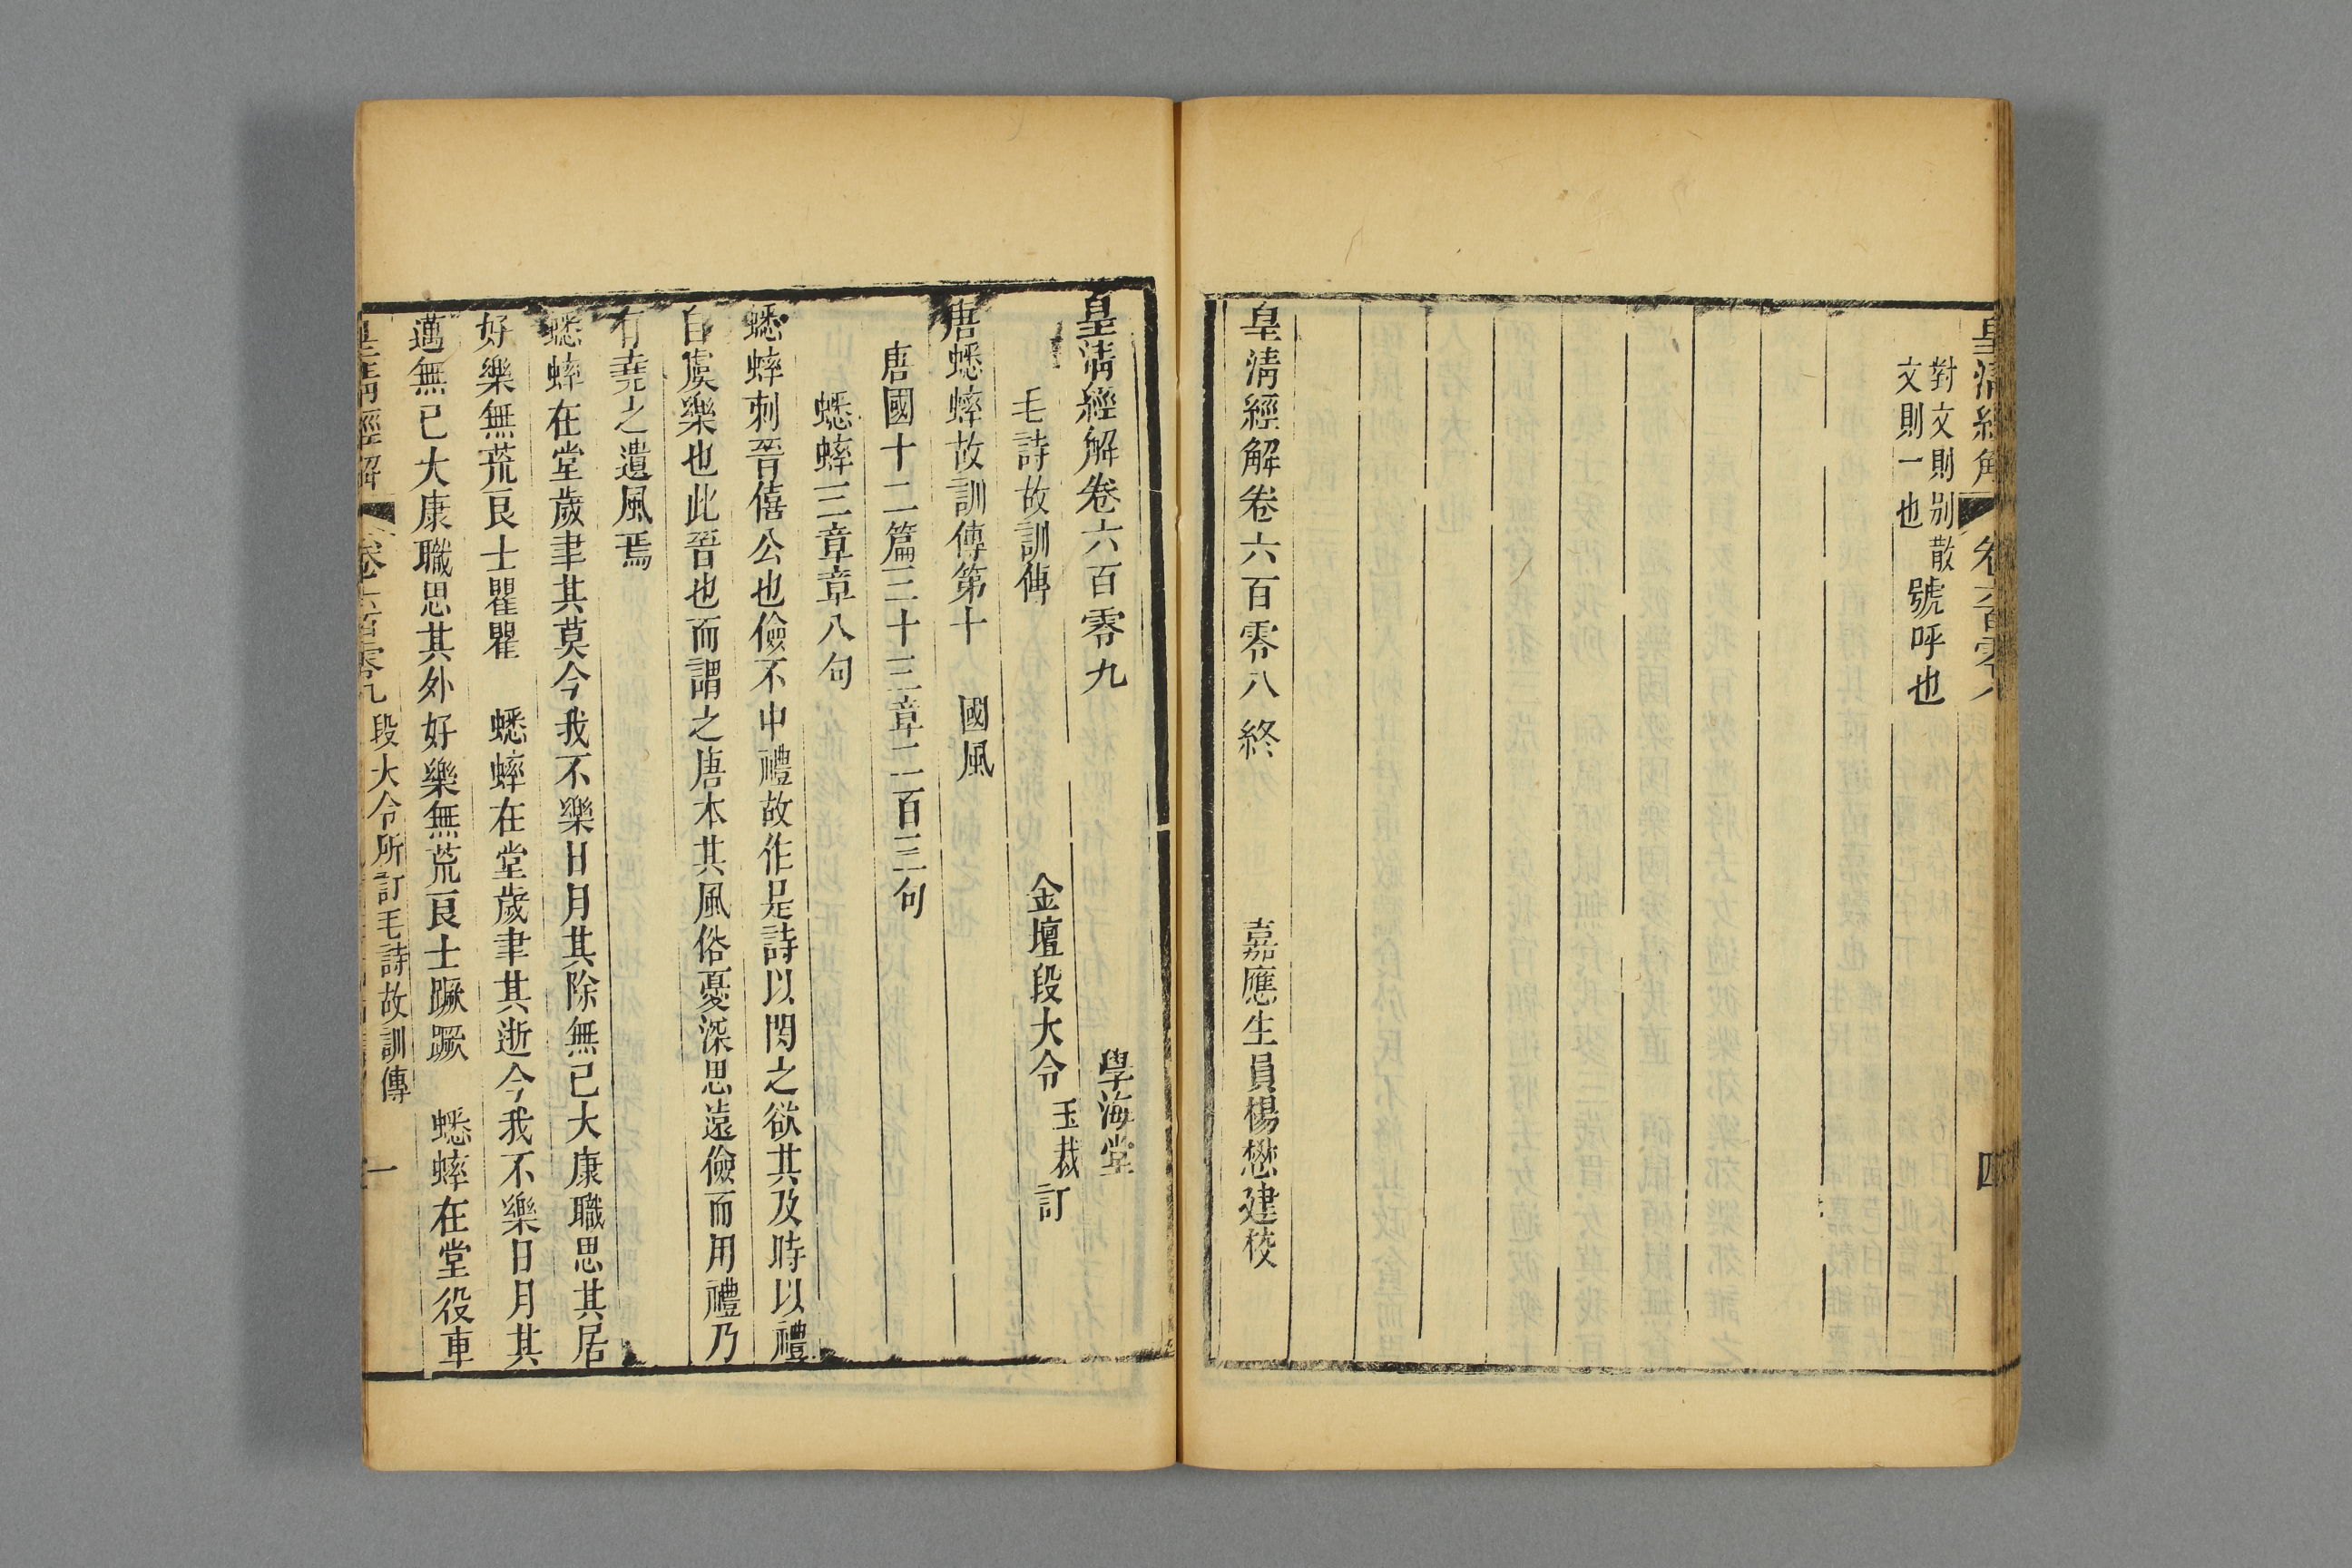 皇清經解 卷六百零八 四
對文則别散
文則一也
號呼也
皇清經解卷六百零八終 嘉應生員楊懋建校
皇清經解卷六百零九 學海堂
毛詩故訓傳 金壇段大令玉裁訂
唐蟋蟀故訓傳第十 國風
唐國十二篇三十三章二百三句
蟋蟀三章章八句
蟋蟀刺晉僖公也儉不中禮故作是詩以閔之欲其及時以禮
自虞樂也此晉也而謂之唐本其風俗憂深思遠儉而用禮乃
有堯之遺風焉
蟋蟀在堂歲聿其莫今我不樂日月其除無已大康職思其居
好樂無荒良士瞿瞿 蟋蟀在堂歲聿其逝今我不樂日月其
邁無已大康職思其外好樂無荒良士蹶蹶 蟋蟀在堂役車
皇清經解 卷六百零九 段大令所訂毛詩故訓傳 一